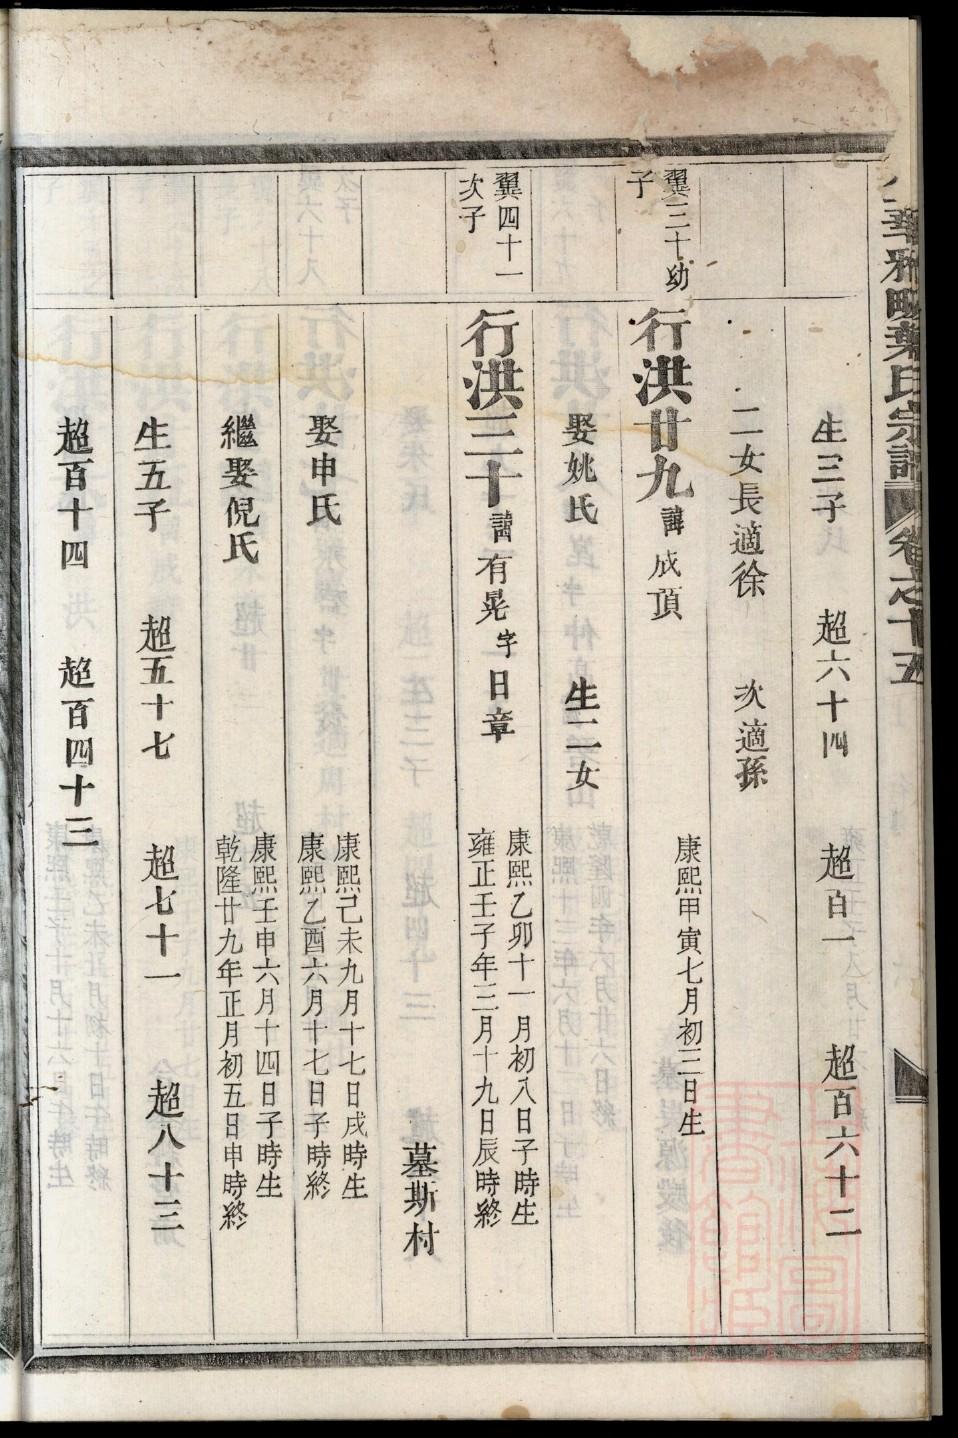 華雅畈葉氏宗譜 卷之十五
生三子 超六十四 超百一 超百六十二
二女長適徐 次適孫
翼三十幼子
行洪廿九 諱成頂 康熙甲寅七月初三日生
娶姚氏 生二女
翼四十一次子
行洪三十 諱有晃 字日章 康熙乙卯十一月初八日子時生
雍正壬子年三月十九日辰時終
墓斯村
娶申氏 康熙己未九月十七日戌時生
康熙乙酉六月十七日子時終
繼娶倪氏 康熙壬申六月十四日子時生
乾隆廿九年正月初五日申時終
生五子 超五十七 超七十一 超八十三
超百十四 超百四十三